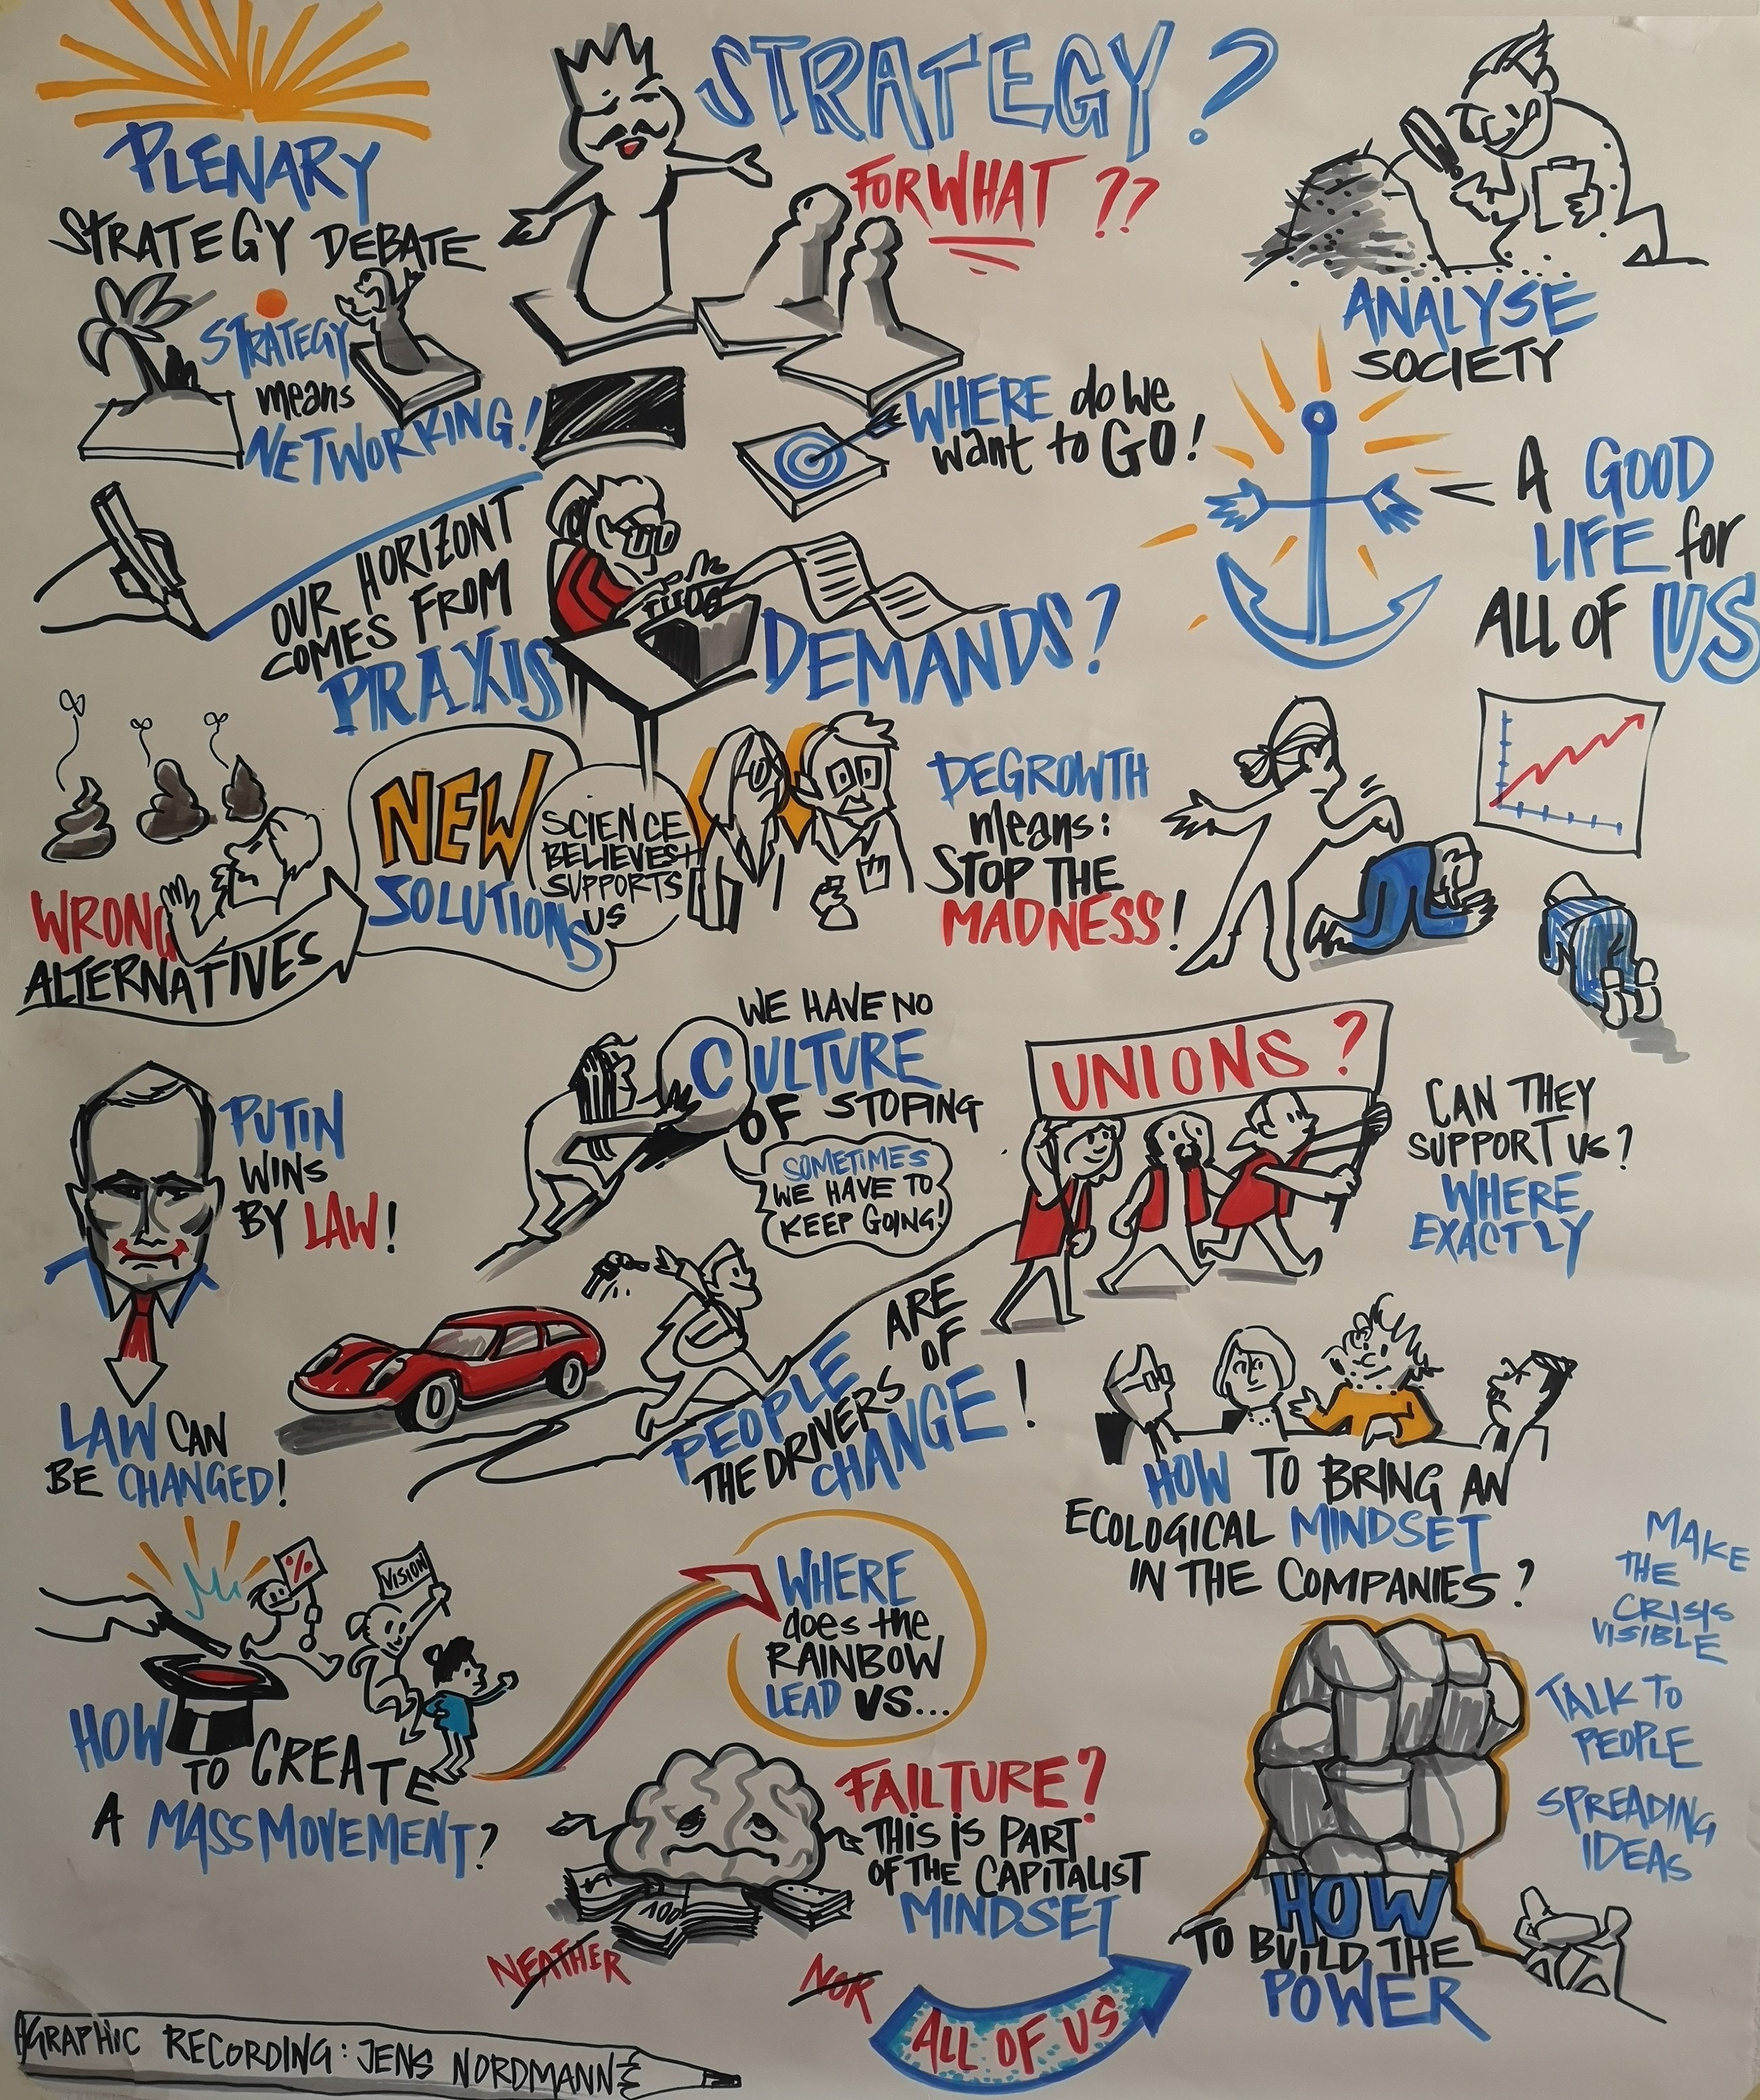 PLENARY
STRATEGY DEBATE
STRATEGY?
FOR WHAT ??
ANALYSE
SOCIETY
STRATEGY
means
NETWORKING!
WHERE do we
want to GO!
A GOOD
LIFE for
ALL OF US
OUR HORIZONT
COMES FROM
PRAXIS
DEMANDS?
WRONG
ALTERNATIVES
NEW
SOLUTIONS
SCIENCE
BELIEVES+
SUPPORTS
US
DEGROWTH
means:
STOP THE
MADNESS!
PUTIN
WINS
BY LAW!
LAW CAN
BE CHANGED!
WE HAVE NO
CULTURE
OF STOPING
SOMETIMES
WE HAVE TO
KEEP GOING!
UNIONS?
CAN THEY
SUPPORT US?
WHERE
EXACTLY
PEOPLE ARE
THE DRIVERS OF
CHANGE!
HOW TO BRING AN
ECOLOGICAL MINDSET
IN THE COMPANIES?
%
VISION
HOW
TO CREATE
A MASS MOVEMENT?
WHERE
does the
RAINBOW
LEAD US...
FAILTURE?
THIS IS PART
OF THE CAPITALIST
MINDSET
100
MAKE
THE
CRISIS
VISIBLE
TALK TO
PEOPLE
SPREADING
IDEAS
HOW
TO BUILD THE
POWER
NEATHER
NOR
ALL OF US
GRAPHIC RECORDING: JENS NORDMANN